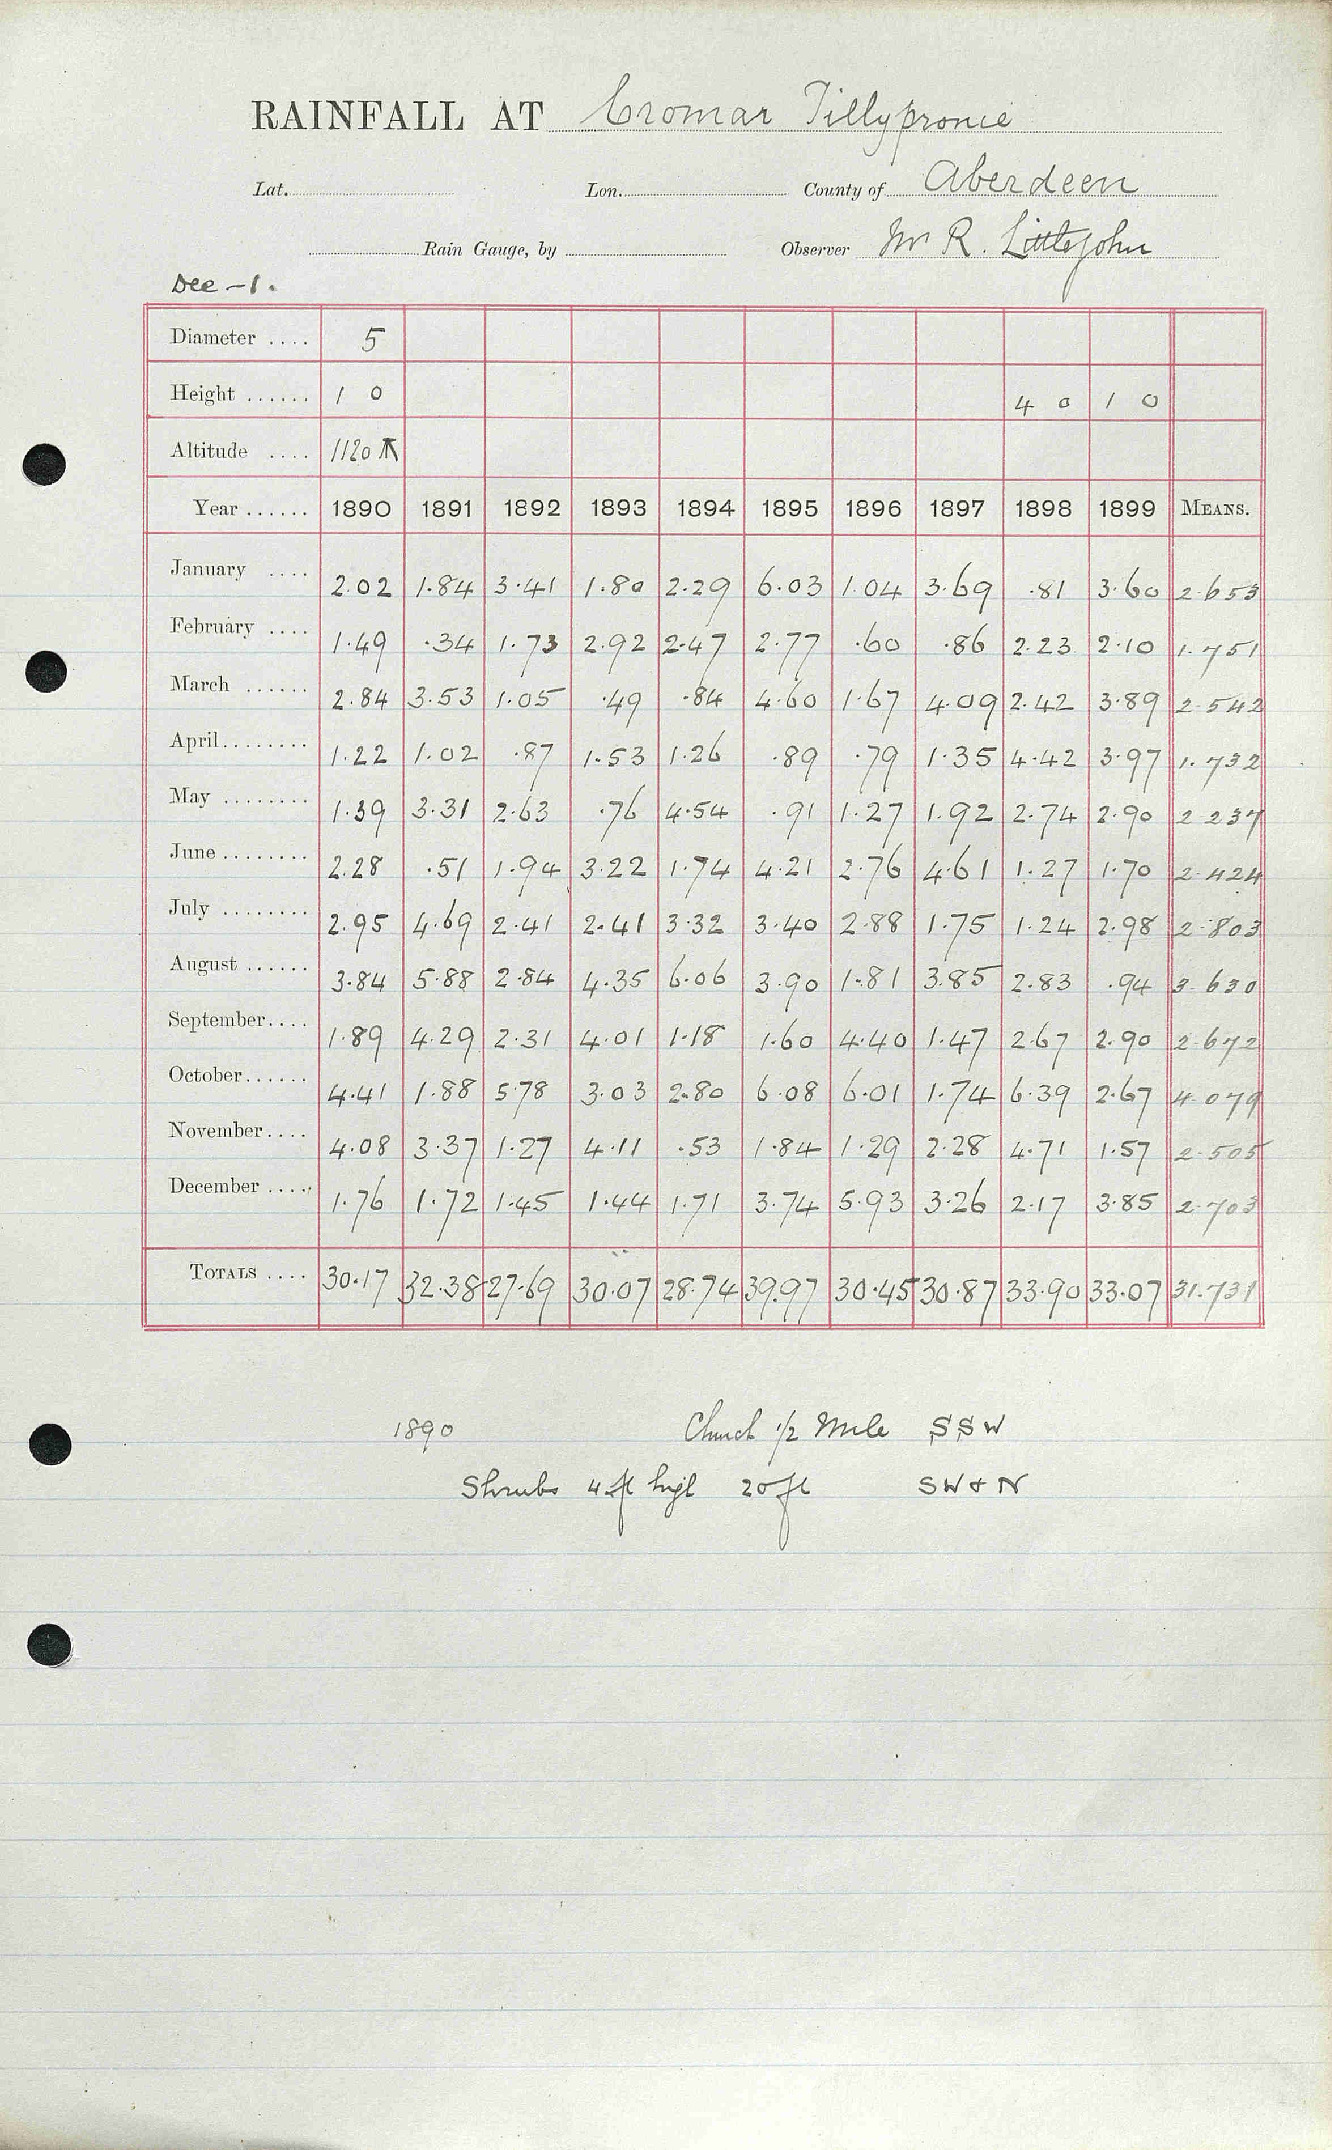 RAINFALL AT Cromar Tillypronie
Lat. Lon. County of Aberdeen
Rain Gauge, by Observer Mr R. Littlejohn
Dee - 1.
Diameter .... 5
Height ...... 1 0 4 0 1 0
Altitude .... 1120
Year ...... 1890 1891 1892 1893 1894 1895 1896 1897 1898 1899 MEANS.
January .... 2.02 1.84 3.41 1.80 2.29 6.03 1.04 3.69 .81 3.60 2.653
February .... 1.49 .34 1.73 2.92 2.47 2.77 .60 .86 2.23 2.10 1.751
March ...... 2.84 3.53 1.05 .49 .84 4.60 1.67 4.09 2.42 3.89 2.542
April........ 1.22 1.02 .87 1.53 1.26 .89 .79 1.35 4.42 3.97 1.732
May ........ 1.39 3.31 2.63 .76 4.54 .91 1.27 1.92 2.74 2.90 2 237
June ........ 2.28 .51 1.94 3.22 1.74 4.21 2.76 4.61 1.27 1.70 2.424
July ........ 2.95 4.69 2.41 2.41 3.32 3.40 2.88 1.75 1.24 2.98 2.803
August ...... 3.84 5.88 2.84 4.35 6.06 3.90 1.81 3.85 2.83 .94 3.630
September.... 1.89 4.29 2.31 4.01 1.18 1.60 4.40 1.47 2.67 2.90 2.672
October...... 4.41 1.88 5.78 3.03 2.80 6.08 6.01 1.74 6.39 2.67 4.079
November.... 4.08 3.37 1.27 4.11 .53 1.84 1.29 2.28 4.71 1.57 2.505
December ..... 1.76 1.72 1.45 1.44 1.71 3.74 5.93 3.26 2.17 3.85 2.703
TOTALS .... 30.17 32.38 27.69 30.07 28.74 39.97 30.45 30.87 33.90 33.07 31.731
1890 Church 1/2 Mile SSW
Shrubs 4 ft high 20 ft SW & N